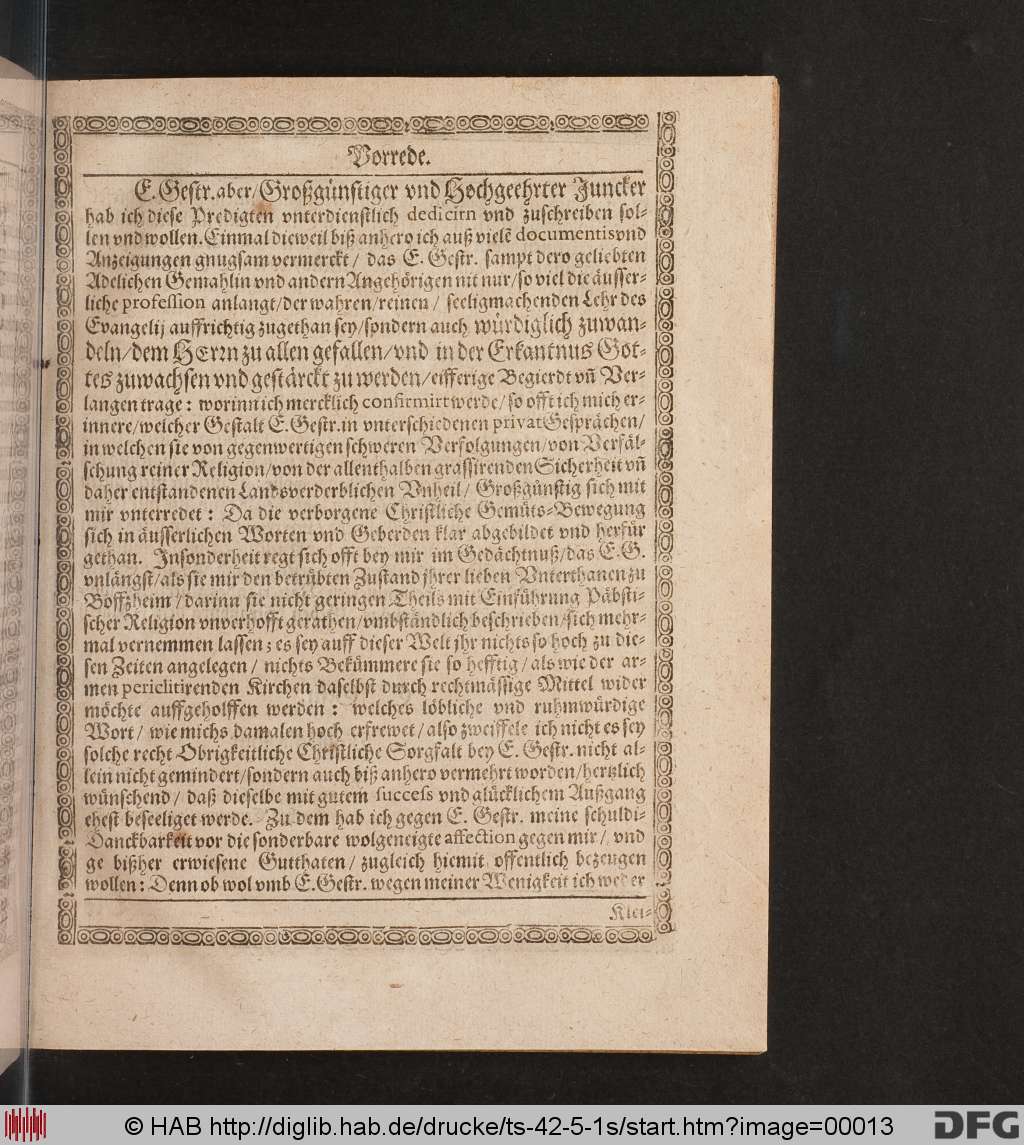 Vorrede.
E. Gestr. aber/ Großgünstiger vnd Hochgeehrter Juncker
hab ich diese Predigten vnterdienstlich dedicirn vnd zuschreiben sol-
len vnd wollen. Einmal dieweil biß anhero ich auß vielẽ documentis vnd
Anzeigungen gnugsam vermerckt/ das E. Gestr. sampt dero geliebten
Adelichen Gemahlin vnd andern Angehörigen nit nur/ so viel die äusser-
liche profession anlangt/ der wahren/ reinen/ seeligmachenden Lehr des
Evangelij auffrichtig zugethan sey/ sondern auch würdiglich zuwan-
deln/ dem HErrn zu allen gefallen/ vnd in der Erkantnus Got-
tes zuwachsen vnd gestärckt zu werden/ eifferige Begierdt vñ Ver-
langen trage: worinn ich mercklich confirmirt werde/ so offt ich mich er-
innere/ welcher Gestalt E. Gestr. in vnterschiedenen privat Gesprächen/
in welchen sie von gegenwertigen schweren Verfolgungen/ von Verfäl-
schung reiner Religion/ von der allenthalben grassirenden Sicherheit vñ
daher entstandenen Landsverderblichen Vnheil/ Großgünstig sich mit
mir vnterredet: Da die verborgene Christliche Gemüts-Bewegung
sich in äusserlichen Worten vnd Geberden klar abgebildet vnd herfür
gethan. Insonderheit regt sich offt bey mir im Gedächtnuß/ das E. G.
vnlängst/ als sie mir den betrübten Zustand jhrer lieben Vnterthanen zu
Boffzheim/ darinn sie nicht geringen Theils mit Einführung Päbsti-
scher Religion vnverhofft gerathen/ vmbständlich beschrieben/ sich mehr-
mal vernemmen lassen; es sey auff dieser Welt jhr nichts so hoch zu die-
sen Zeiten angelegen/ nichts Bekümmere sie so hefftig/ als wie der ar-
men periclitirenden Kirchen daselbst durch rechtmässige Mittel wider
möchte auffgeholffen werden: welches löbliche vnd ruhmwürdige
Wort/ wie michs damalen hoch erfrewet/ also zweiffele ich nicht es sey
solche recht Obrigkeitliche Christliche Sorgfalt bey E. Gestr. nicht al-
lein nicht gemindert/ sondern auch biß anhero vermehrt worden/ hertzlich
wünschend/ daß dieselbe mit gutem success vnd glücklichem Außgang
ehest beseeliget werde. Zu dem hab ich gegen E. Gestr. meine schuldi-
Danckbarkeit vor die sonderbare wolgeneigte affection gegen mir/ vnd
ge bißher erwiesene Gutthaten/ zugleich hiemit offentlich bezeugen
wollen: Denn ob wol vmb E. Gestr. wegen meiner Wenigkeit ich weder
Klei-
© HAB http://diglib.hab.de/drucke/ts-42-5-1s/start.htm?image=00013
DFG